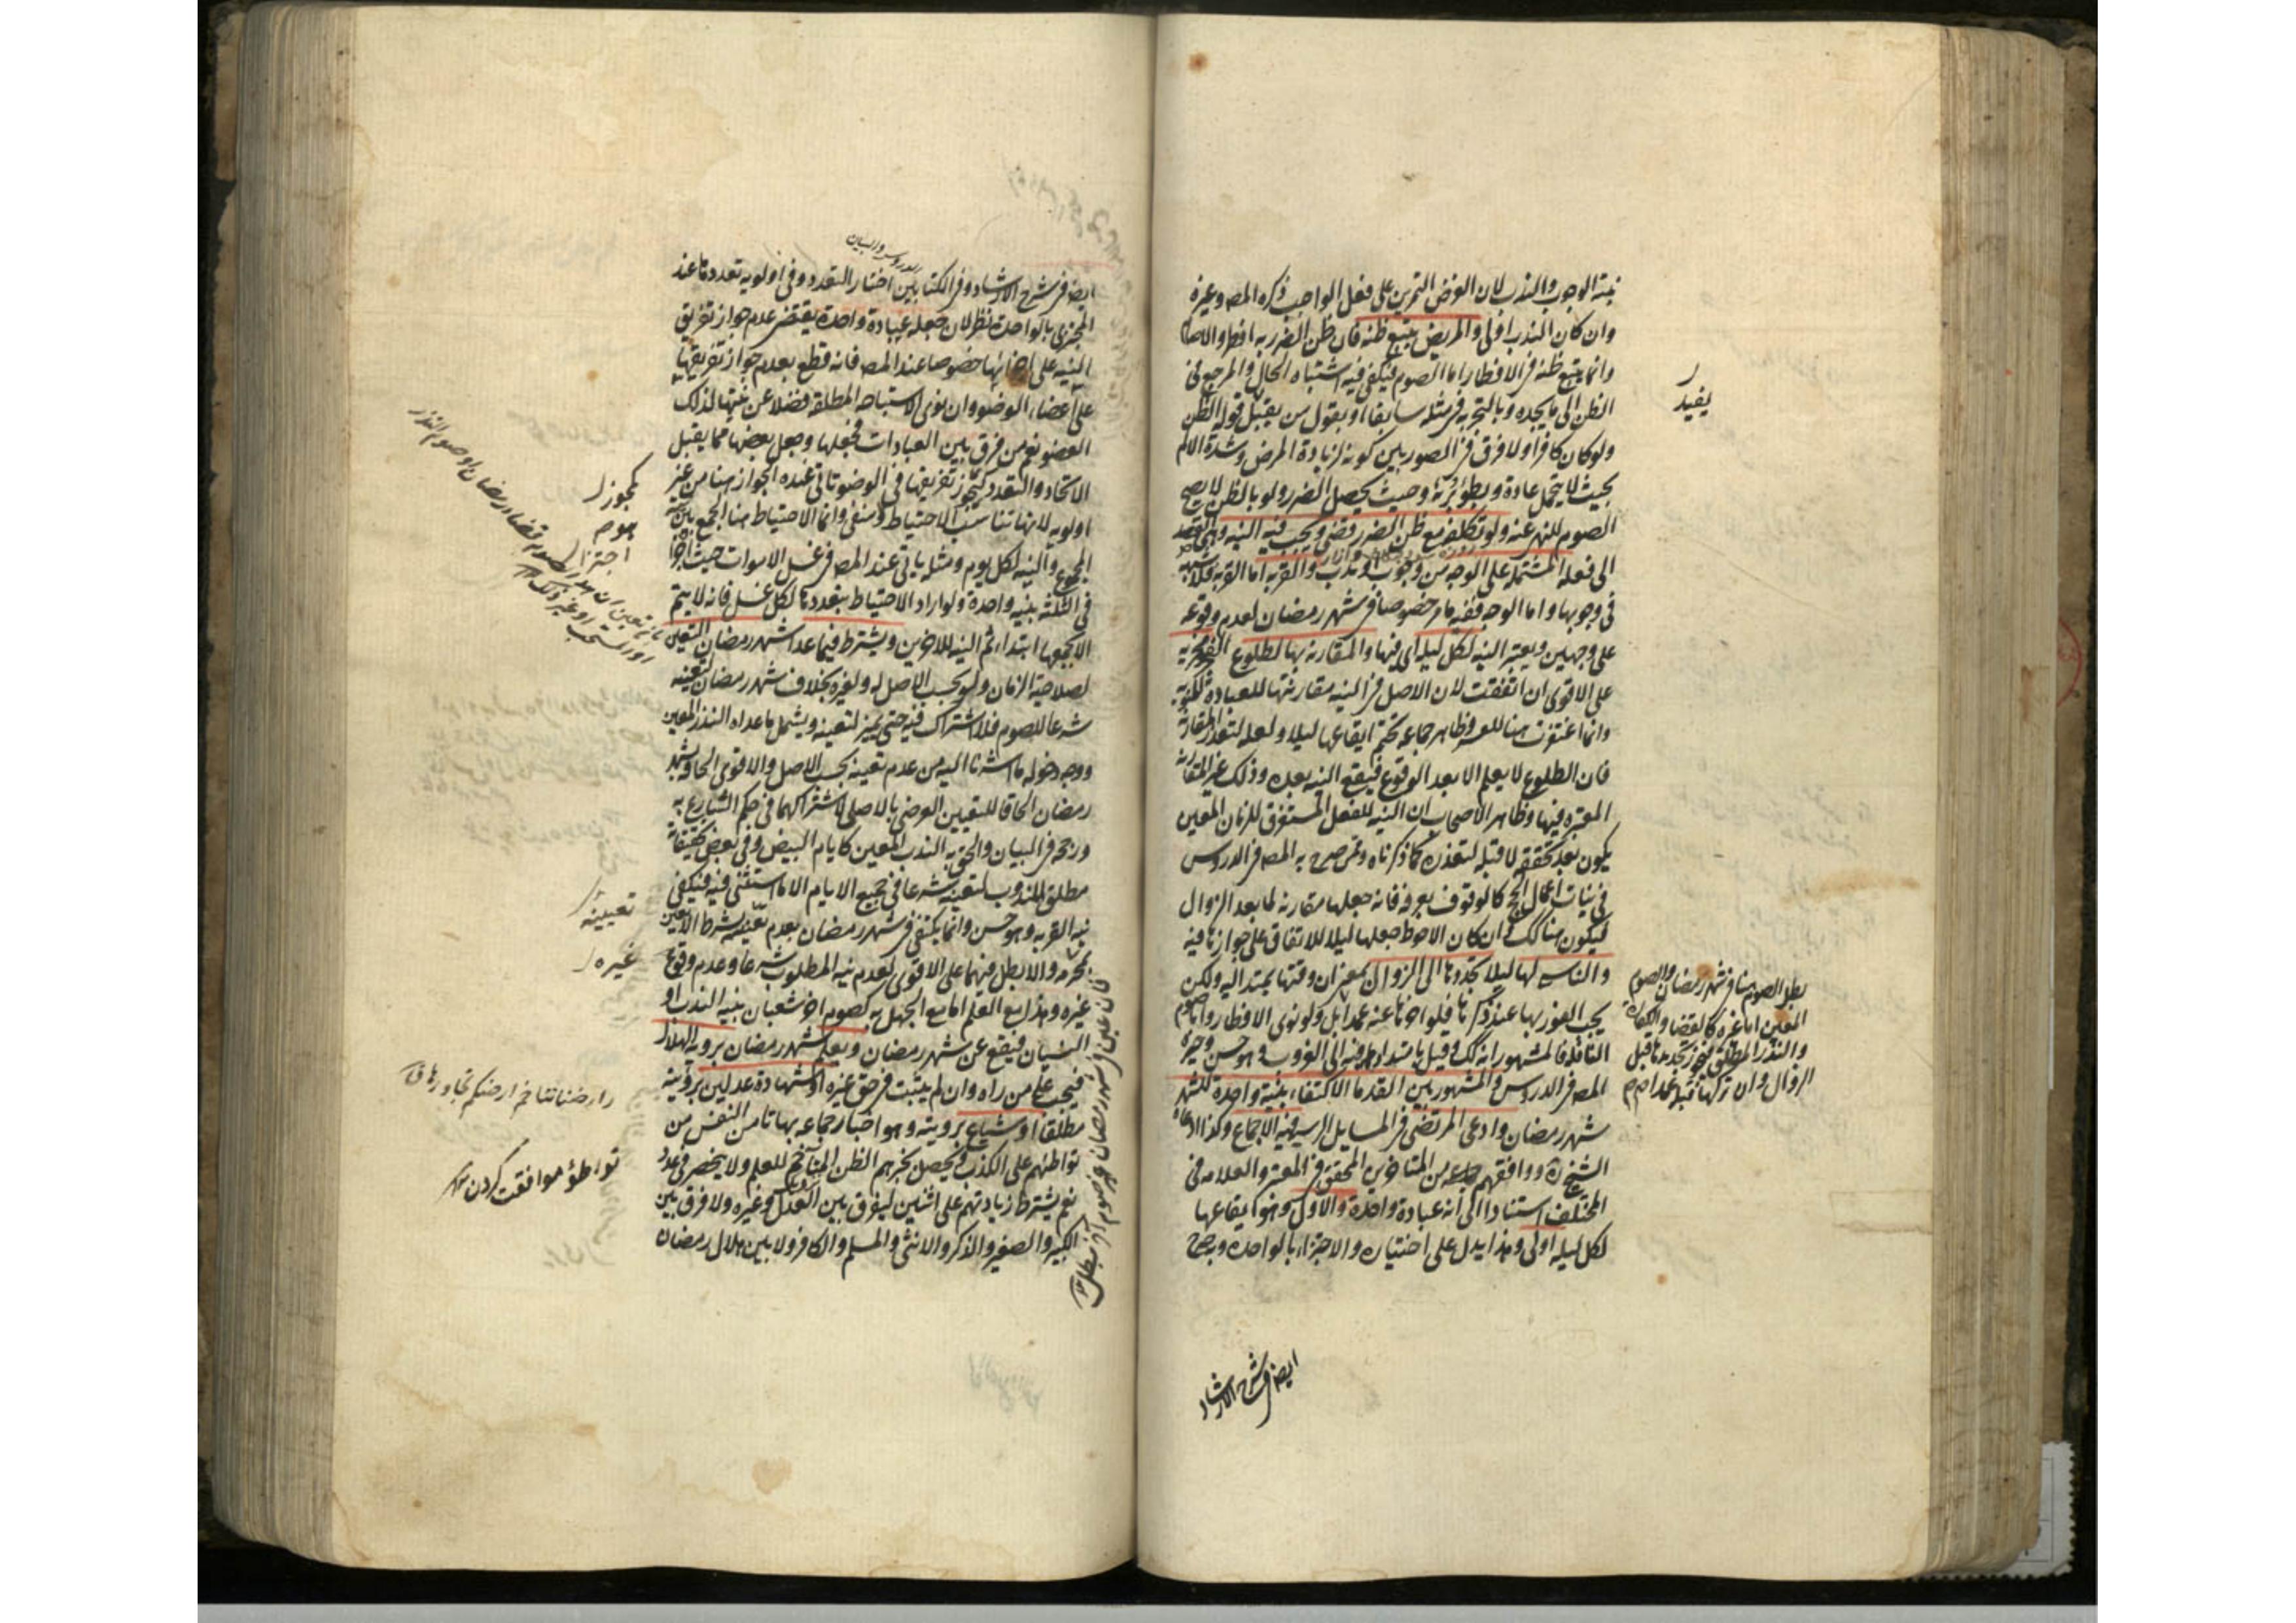 نية الوجوب والندب لان الغرض التمرين على فعل الواجب ذكره المصـ وغيره
وان كان الندب اولى والمريض يتبع ظنه فان ظن الضرر به افطر والا صام
وانما يتبع ظنه فى الافطار اما الصوم فيكفى فيه اشتباه الحال والمرجع فى
الظن الى ما يجده وبالتجربة فى مثله سابقا او بقول من يقبل قوله الظن
ولو كان كافرا ولا فرق فى الضرر بين كونه لزيادة المرض وشدة الالم
بحيث لا يتحمل عادة وبطؤ برئه وحيث يحصل الضرر ولو بالظن لا يصح
الصوم للنهى عنه ولو تكلفه مع ظن الضرر قضى ويجب فيه النية وهى القصد
الى فعله المشتمل على الوجه من وجوب او ندب والقربة اما القربة فلا شبهة
فى وجوبها واما الوجه ففيه ما مر خصوصا فى شهر رمضان لعدم وقوعه
على وجهين ويعتبر النية لكل ليلة اى فيها والمقارنة بها لطلوع الفجر
على الاقوى ان اتفقت لان الاصل فى النية مقارنتها للعبادة
وانما اغتفرت هنا للعسر وظاهر جماعة تحتم ايقاعها ليلا ولعله لتعذر المقارنة
فان الطلوع لا يعلم الا بعد الوقوع فيقع النية بعده وذلك غير المقارنة
المعتبرة فيها وظاهر الاصحاب ان النية للفعل المستغرق للزمان المعين
يكون بعد تحققه لا قبله لتعذره كما ذكرناه وممن صرح به المصـ فى الدروس
فى نيات اعمال الحج كالوقوف بعرفة فانه جعلها مقارنة لما بعد الزوال
ليكون هنا كذلك وان كان الاحوط جعلها ليلا للاتفاق على جوازها فيه
والناسى لها ليلا يجددها الى الزوال بمعنى ان وقتها يمتد اليه ولكن
يجب الفور بها عند ذكرها فلو اخرها عنه عمدا بطل ولو نوى الافطار واما صوم
النافلة فالمشهور انه كذلك وقيل بامتدادها فيه الى الغروب وهو حسن وخيرة
المصـ فى الدروس والمشهور بين القدماء الاكتفاء بنية واحدة للشهر
شهر رمضان وادعى المرتضى فى المسايل الرسية فيه الاجماع وكذا ادعاه
الشيخ ره ووافقهم من المتاخرين المحقق فى المعتبر والعلامة فى
المختلف استنادا الى انه عبادة واحدة والاول وهو ايقاعها
لكل ليلة اولى وهذا يدل على اختياره والاجتزاء بالواحدة وبه صرح
يفيد
بطل الصوم هنا فى شهر رمضان والصوم
المعين اما غيره كالقضاء والكفارة
والنذر المطلق فيجوز تجديدها قبل
الزوال وان تركها قبله عمدا م م
ايضا فى شرح الارشاد
الدروس والبيان
ايضا فى شرح الارشاد وفى الكتابين اختار التعدد وفى اولوية تعددها عند
المجتزى بالواحدة نظر لان جعله عبادة واحدة يقتضى عدم جواز تفريق
النية على اجزائها خصوصا عند المصـ فانه قطع بعدم جواز تفريقها
على اعضاء الوضوء وان نوى الاستباحة المطلقة فضلا عن نيتها لذلك
العضو نعم من فرق بين العبادات فجعلها وجعل بعضها مما يقبل
الاتحاد والتعدد كتجوز تفريقها فى الوضوء تاتى عنده الجواز هنا من غير
اولوية لانها تناسب الاحتياط وهو منفى وانما الاحتياط هنا الجمع بين نية
المجموع والنية لكل يوم ومثله ياتى عند المصـ فى غسل الاموات حيث اجزا
فى الثلثة بنية واحدة ولو اراد الاحتياط بتعددها لكل غسل فانه لا يتم
الا بجمعها ابتداء ثم النية للاخرين ويشترط فيما عدا شهر رمضان التعيين
لصلاحية الزمان ولو بحسب الاصل له ولغيره بخلاف شهر رمضان لتعينه
شرعا للصوم فلا اشتراك فيه حتى يميز لتعينه ويشمل ما عداه النذر المعين
ووجه دخوله ما اشرنا اليه من عدم تعينه بحسب الاصل والاقوى الحاقه بشهر
رمضان الحاقا للتعيين العرضى بالاصلى لاشتراكهما فى حكم الشارع به
ورجحه فى البيان والحق به الندب المعين كايام البيض وفى بعض تحقيقاته
مطلق المندوب لتعينه شرعا فى جميع الايام الا ما استثنى فيه فيكفى
نية القربة وهو حسن وانما يكتفى فى شهر رمضان بعدم تعيينه بشرط الا يعين
بحرمه والا بطل فيهما على الاقوى لعدم نية المطلوب شرعا وعدم وقوع
غيره وهذا مع العلم اما مع الجهل به كصوم اخر شعبان بنية الندب او
النسيان فيقع عن شهر رمضان ويعلم شهر رمضان بروية الهلال
فيجب على من راه وان لم يثبت فى حق غيره او شهادة عدلين برويته
مطلقا او شياع برويته وهو اخبار جماعة بها تامن النفس من
تواطئهم على الكذب ويحصل بخبرهم الظن المتاخم للعلم ولا ينحصر فى عدد
نعم يشترط زيادتهم على اثنين ليفرق بين العدل وغيره ولا فرق بين
الكبير والصغير والذكر والانثى والمسلم والكافر ولا بين هلال رمضان
يجوز
اجتزا
تعيينه
غيره
ارضنا تتاخم ارضكم تجاورها ق
تواطؤ موافقت كردن